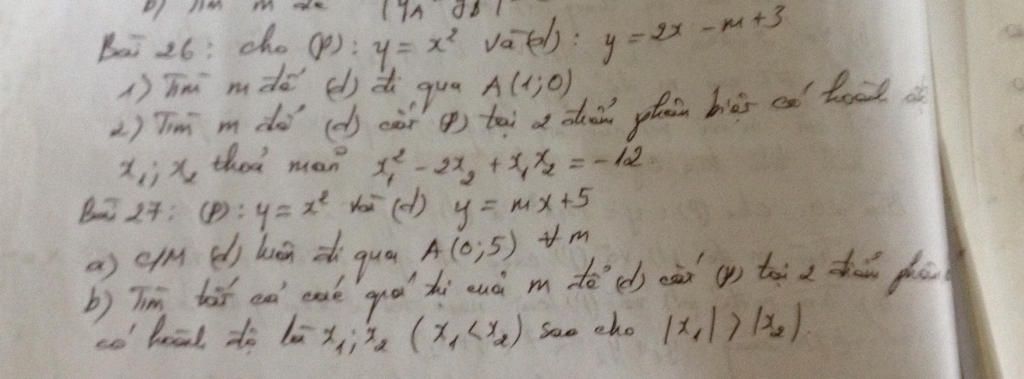 b) Tìm m để |yA - yB|
Bài 26: cho (P): y = x² và (d): y = 2x - m + 3
1) Tìm m để (d) đi qua A(1;0)
2) Tìm m để (d) cắt (P) tại 2 điểm phân biệt có hoành độ
x₁; x₂ thoả mãn x₁² - 2x₂ + x₁x₂ = -12
Bài 27: (P): y = x² và (d) y = mx + 5
a) C/M (d) luôn đi qua A(0;5) ∀m
b) Tìm tất cả các giá trị của m để (d) cắt (P) tại 2 điểm phân
có hoành độ là x₁; x₂ (x₁ < x₂) sao cho |x₁| > |x₂|.